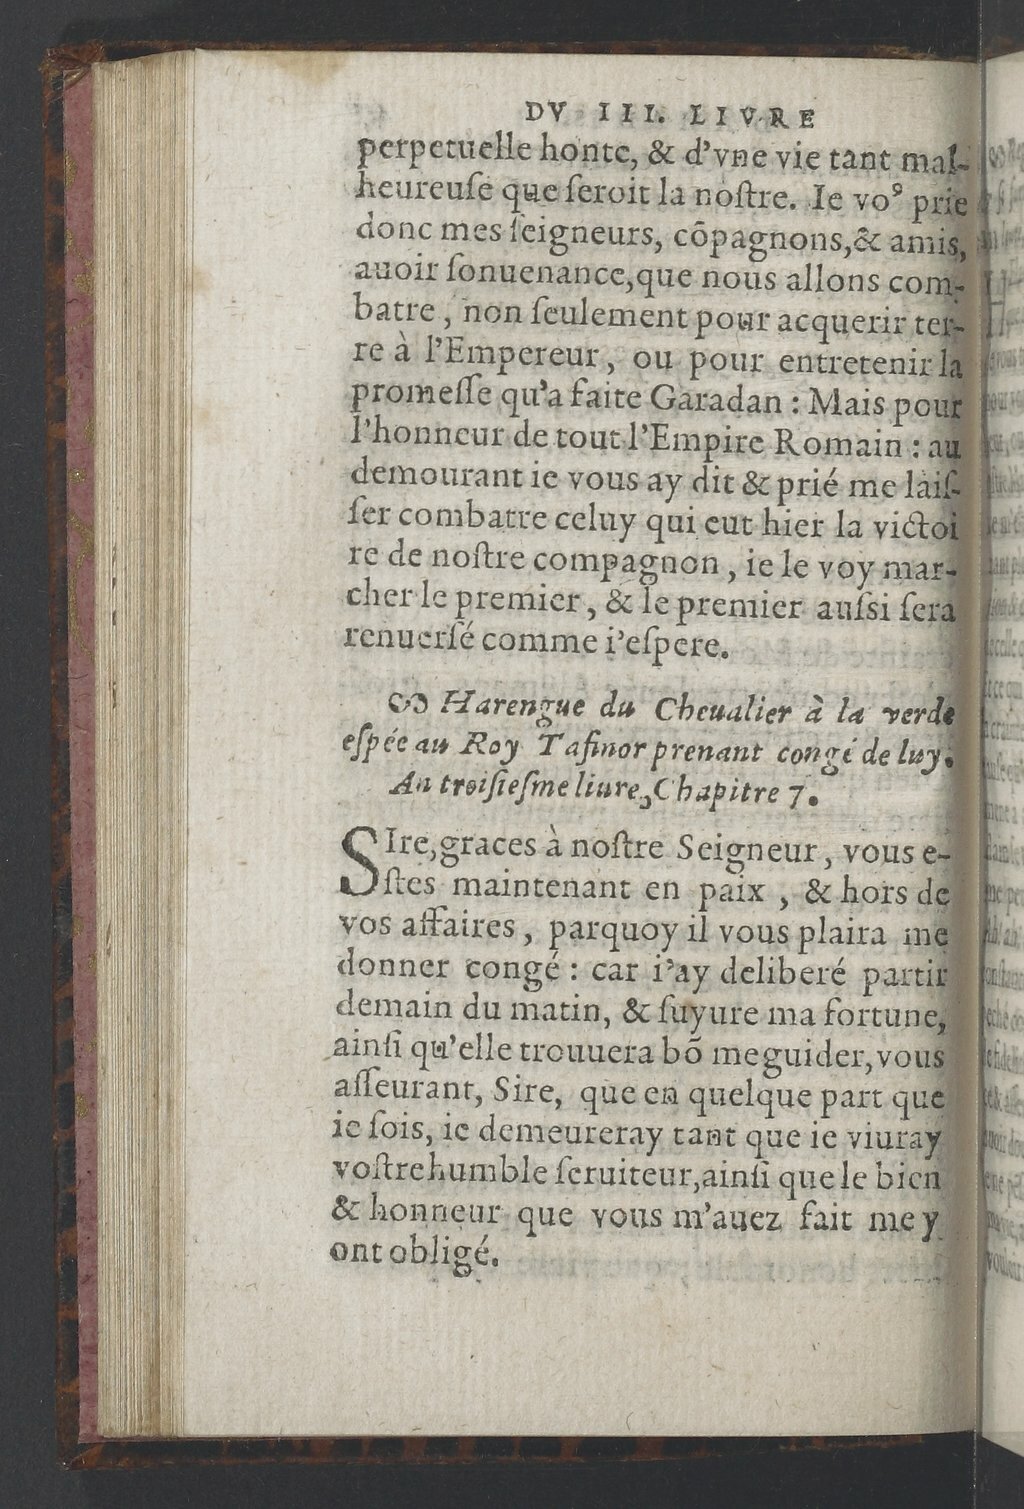 DV III. LIVRE
perpetuelle honte, & d'vne vie tant mal-
heureuſe que ſeroit la noſtre. Ie voꝰ prie
donc mes ſeigneurs, cõpagnons,& amis,
auoir ſonuenance,que nous allons com-
batre, non ſeulement pour acquerir ter-
re à l'Empereur, ou pour entretenir la
promeſſe qu'a faite Garadan : Mais pour
l'honneur de tout l'Empire Romain : au
demourant ie vous ay dit & prié me laiſ-
ſer combatre celuy qui eut hier la victoi
re de noſtre compagnon, ie le voy mar-
cher le premier, & le premier auſsi ſera
renuerſé comme i'eſpere.
Harengue du Cheualier à la verde
eſpée au Roy Taſinor prenant congé de luy.
Au troiſieſme liure, Chapitre 7.
SIre,graces à noſtre Seigneur, vous e-
ſtes maintenant en paix, & hors de
vos affaires, parquoy il vous plaira me
donner congé : car i'ay deliberé partir
demain du matin, & ſuyure ma fortune,
ainſi qu'elle trouuera bõ me guider,vous
aſſeurant, Sire, que en quelque part que
ie ſois, ie demeureray tant que ie viuray
voſtre humble ſeruiteur,ainſi que le bien
& honneur que vous m'auez fait me y
ont obligé.